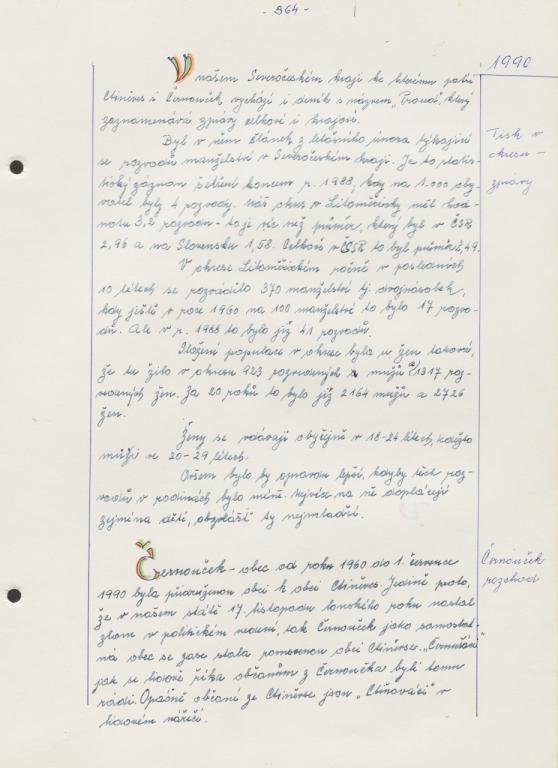 - 964 -
1990
V našem Severočeském kraji ke kterému patří
Ctiněves i Černouček, vychází i deník s názvem "Průboj", který
zaznamenává zprávy celkové i krajové.
Byl v něm článek z letošního února týkající
se rozvodů manželství v Severočeském kraji. Je to statis-
tický záznam šetření koncem r. 1988, kdy na 1.000 oby-
vatel byly 4 rozvody. Náš okres v Litoměřicky měl hod-
notu 3,2 rozvodu - to je víc než průměr, který byl v ČSR
2,96 a na Slovensku 1,58. Celkově v ČSSR to byl průměr 2,49.
Tisk o
okresu -
zprávy
V okrese Litoměřickém ročně v posledních
10 létech se rozvádilo 370 manželství tj. dvojnásobek,
kdy ještě v roce 1960 na 100 manželství to bylo 17 rozvo-
dů. Ale v r. 1988 to bylo již 41 rozvodů.
Složení populace v okrese byla u žen taková,
že tu žilo v okresu 923 rozvedených mužů a 1317 roz-
vedených žen. Za 20 roků to bylo již 2164 mužů a 2726
žen.
Ženy se vdávají obyčejně v 18-24 létech, kdežto
muži ve 20-29 létech.
Ovšem bylo by opravdu lepší, kdyby těch roz-
vodů v rodinách bylo méně. Nejvíce na ně doplácejí
zejména děti, obzvlášť ty nejmladší.
Černouček - obec od roku 1960 do 1. července
1990 byla přidruženou obcí k obci Ctiněves. Jedině proto,
že v našem státě 17. listopadu loňského roku nastal
zlom v politickém vedení, tak Černouček jako samostat-
ná obec se zase stala rovnocenou obcí Ctiněvse. "Černoučáci"
jak se lidově říká občanům z Černoučka byli tomu
rádi. Opačně občané ze Ctiněvse jsou "Ctiňováci" v
lidovém nářečí.
Černouček
rozchod